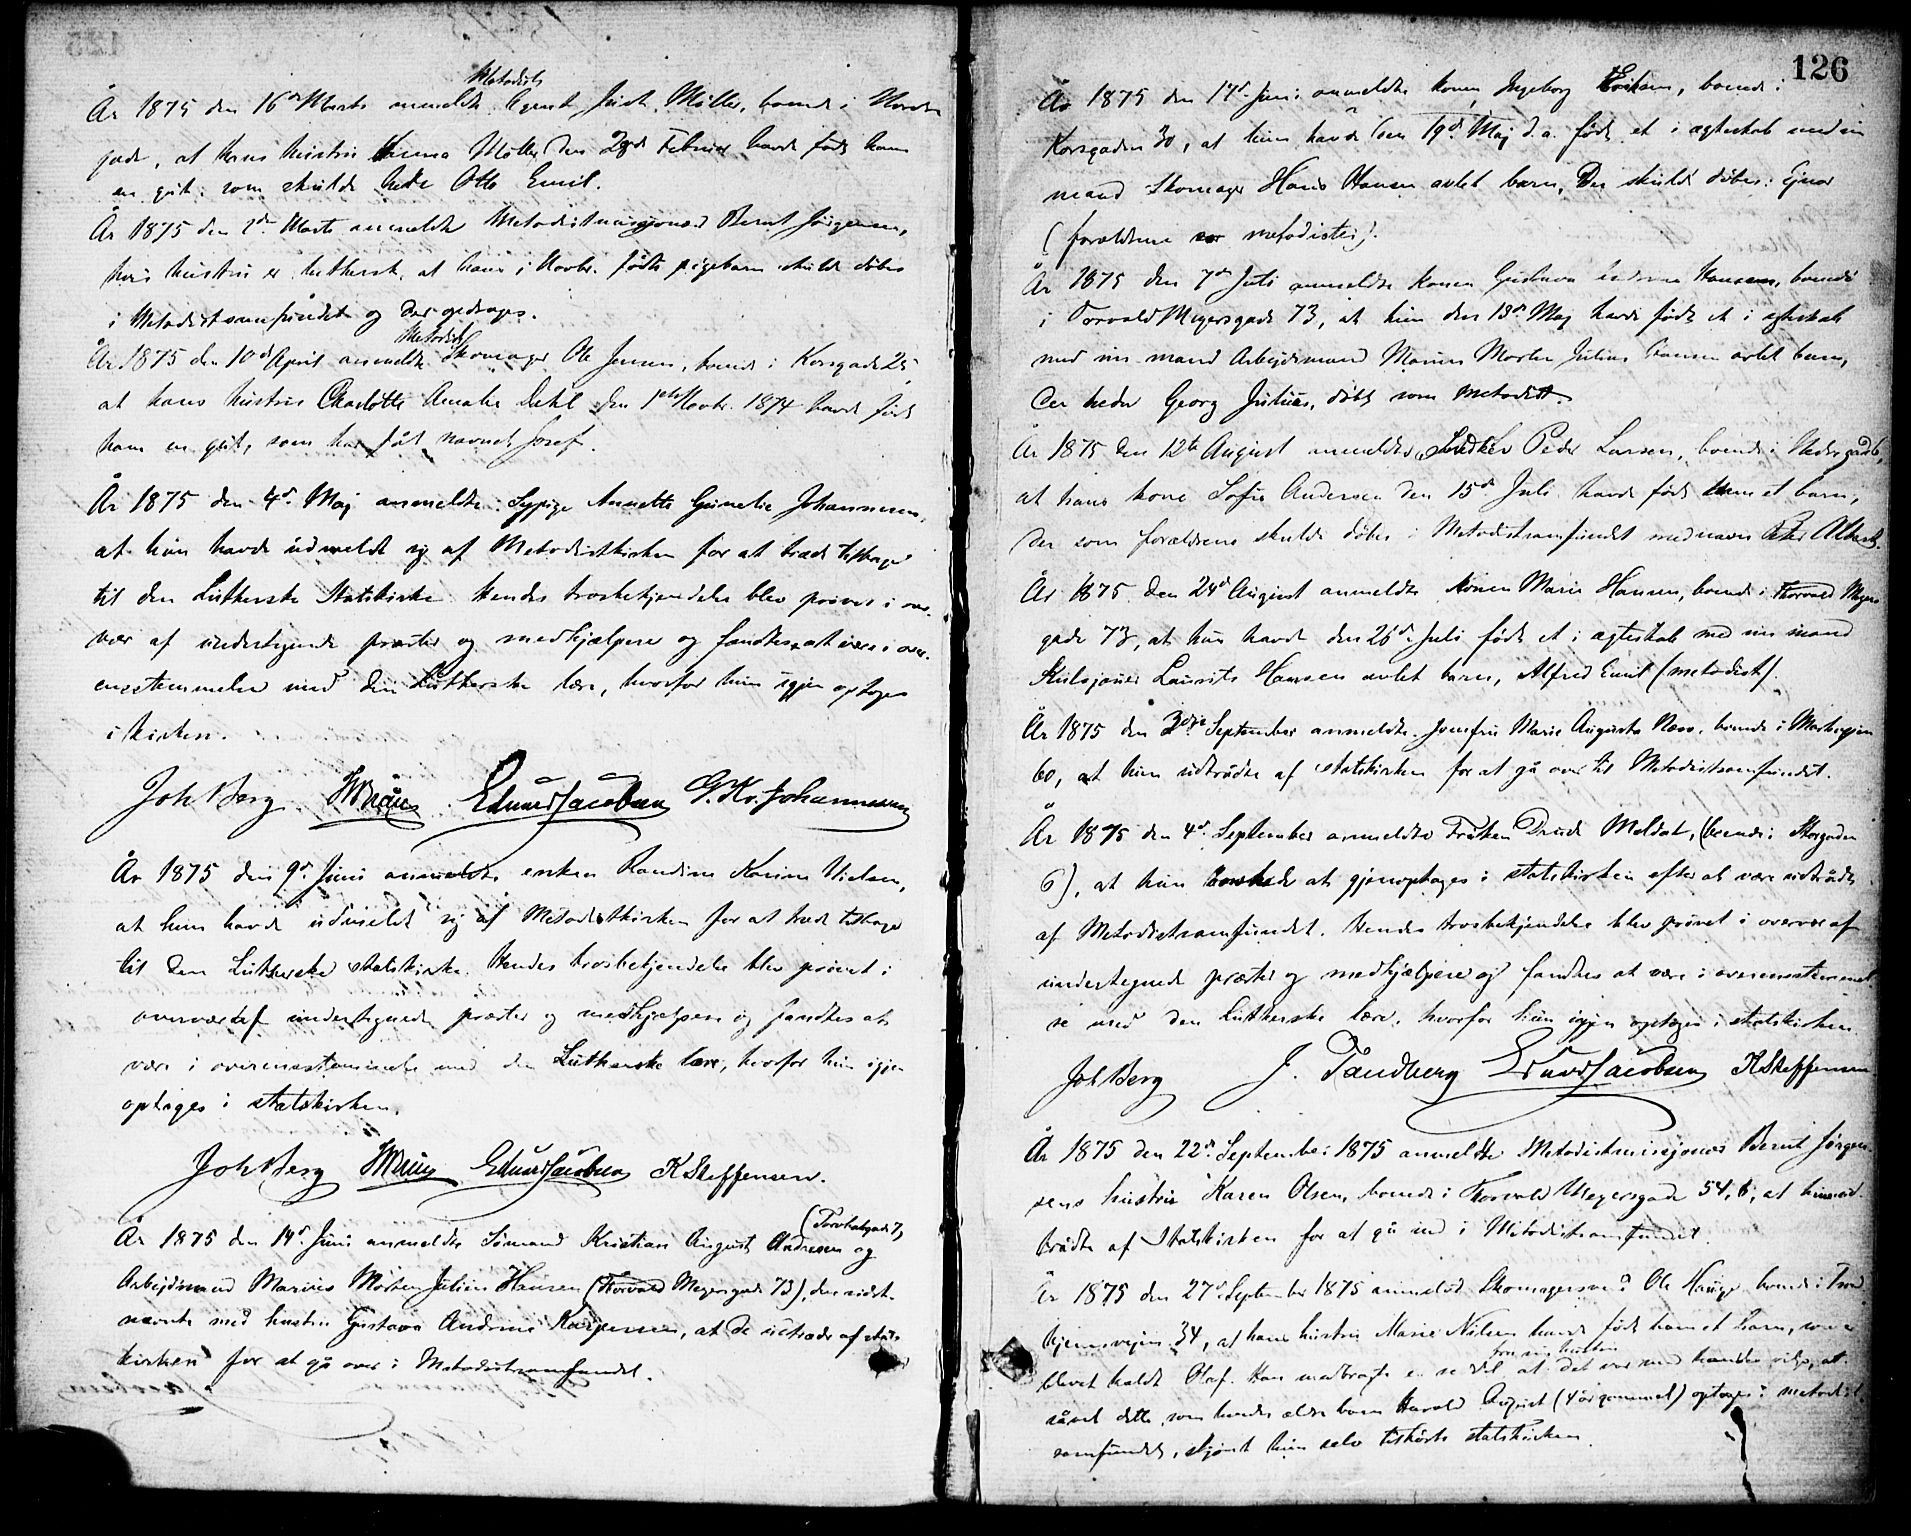 Metodist
År 1875 den 16de Marts anmeldte Agent Just Møller, boende i Norder
gade, at hans hustru Hanna Møller den 28de Februar havde født ham
en gut, som skulde hede Otto Emil.
År 1875 den 2den Marts anmeldte Metodistmissjonær Bernt Jørgensen,
hvis hustru er luthersk, at hans i Novbr. fødte pigebarn skulde døbes
i Metodistsamfundet og der opdrages.
Metodist
År 1875 den 10de April anmeldte Skomager Ole Jensen, boende i Korsgade 25,
at hans hustru Charlotte Amalie Dahl den 1ste Novbr. 1874 havde født
ham en gut, som har fåt navnet Josef.
År 1875 den 4de Maj anmeldte Sypige Annette Gunelie Johannesen,
at hun havde udmeldt sig af Metodistkirken for at træde tilbage
til den Lutherske Statskirke. Hendes trosbekjendelse blev prøvet i over-
vær af undertegnede præster og medhjælpere og fandtes at være i over-
ensstemmelse med den Lutherske lære, hvorfor hun igjen optoges
i kirken.
Joh Berg Edvard Jacobsen G. Kr. Johannesen
År 1875 den 9de Juni anmeldte enken Randine Karine Nielsen,
at hun havde udmeldt sig af Metodistkirken for at træde tilbage
til den Lutherske statskirke. Hendes trosbekjendelse blev prøvet i
overvær af undertegnede præster og medhjælpere og fandtes at
være i overensstemmelse med den Lutherske lære, hvorfor hun igjen
optoges i statskirken.
Joh Berg Edvard Jacobsen K Steffensen.
(Torvbakgade 7)
År 1875 den 14de Juni anmeldte Sømand Kristian August Andresen og
Arbejdsmand Marius Morten Julius Hansen (Thorvald Meyersgade 73), den sidst-
nævnte med hustru Gustava Andrine Kaspersen, at de udtræde af stats-
kirken for at gå over i Metodistsamfundet.
126
År 1875 den 17de Juni anmeldte konen Ingeborg Eriksen, boende i
Korsgaden 30, at hun havde den 19de Maj d.a. født et i ægteskab med sin
mand Skomager Hans Hansen avlet barn, der skulde døbes: Ejnar
(forældrene er metodister).
År 1875 den 7de Juli anmeldte konen Gustava Andrine Hansen, boende
i Torvald Meyersgade 73, at hun den 13de Maj havde født et i ægteskab
med sin mand Arbejdsmand Marius Morten Julius Hansen avlet barn,
der heder Georg Julius, døbt som Metodist.
År 1875 den 12te August anmeldte Snedker Peder Larsen, boende i Nedregade 6,
at hans kone Sofie Andersen den 15de Juli havde født ham et barn,
der som forældrene skulde døbes i Metodistsamfundet med navn Peter Albert.
År 1875 den 24de August anmeldte konen Marie Hansen, boende i Thorvald Meyers
gade 73, at hun havde den 26de Juli født et i ægteskab med sin mand
Laurits Hansen avlet barn, Alfred Emil (metodist).
År 1875 den 3dje September anmeldte Jomfru Marie Augusta Næss, boende i Markvejen
60, at hun udtrådte af statskirken for at gå over til Metodistsamfundet.
År 1875 den 4de September anmeldte Frøken Drude Meldal, (boende i Storgaden
6), at hun ønskede at gjenoptages i statskirken efter at være udtrådt
af Metodistsamfundet. Hendes trosbekjendelse blev prøvet i overvær af
undertegnede præster og medhjælpere og fandtes at være i overensstemmel-
se med den Lutherske lære, hvorfor hun igjen optoges i statskirken
Joh Berg J. Tandberg Edvard Jacobsen K Steffensen
År 1875 den 22de September 1875 anmeldte Metodistmissjonær Bernt Jørgen-
sens hustru Karen Olsen, boende i Thorvald Meyersgade 54, b, at hun ud-
trådte af Statskirken for at gå ind i Metodistsamfundet.
År 1875 den 27de September 1875 anmeldte Skomagersvend Ole Hauge boende i Trond-
hjemsvejen 34, at hans hustru Marie Nilsen havde født ham et barn, som er
fra sin hustru
blevet kaldt Olaf. Han medbragte en seddel at det var med hendes vilje, at
såvel dette, som hendes ældre barn Harald August (4 år gammel) optoges i metodist
samfundet, skjønt hun selv tilhørte statskirken.